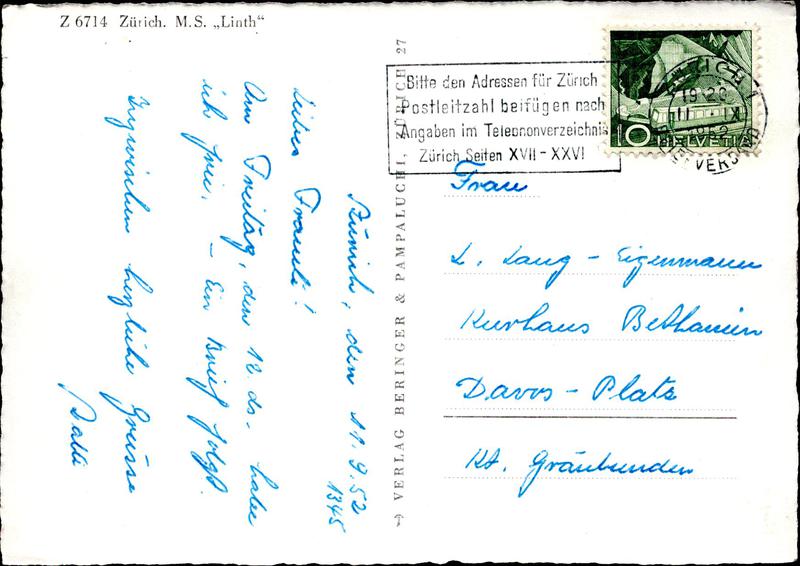 Z 6714 Zürich. M.S. „Linth“
Zürich, den 11.9.52
1345
Liebes Frauli!
Am Freitag, den 12. ds. habe
ich frei. – Ein Brief folgt.
Inzwischen herzliche Grüsse
VERLAG BERINGER & PAMPALUCHI, ZÜRICH 27
Bitte den Adressen für Zürich
Postleitzahl beifügen nach
Angaben im Telephonverzeichnis
Zürich Seiten XVII-XXVI
10 HELVETIA
Frau
L. Lang - Eigenmann
Kurhaus Bethanien
Davos - Platz
Kt. Graübunden